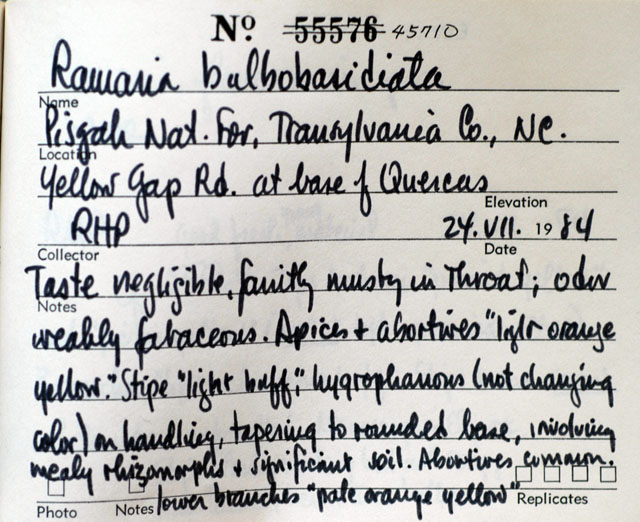 Nº 55576 45710
Ramaria bulbobasidiata
Name
Pisgah Nat. For., Transylvania Co., NC.
Location
Yellow Gap Rd. at base of Quercus
Elevation
RHP 24.VII. 19 84
Collector Date
Taste negligible, faintly musty in throat; odor
Notes
weakly fabaceous. Apices + abortives "light orange
yellow." Stipe "light buff," hygrophanous (not changing
color) on handling, tapering to rounded base, involving
mealy rhizomorphs + significant soil. Abortives common.
lower branches "pale orange yellow"
Photo Notes Replicates